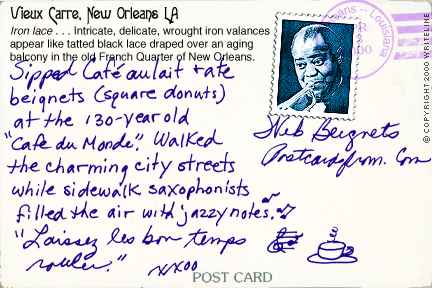 Vieux Carre, New Orleans LA
Iron lace . . . Intricate, delicate, wrought iron valances
appear like tatted black lace draped over an aging
balcony in the old French Quarter of New Orleans.
Sipped Café au lait + ate
beignets (square donuts)
at the 130-year old
"Cafe du Monde." Walked
the charming city streets
while sidewalk saxophonists
filled the air with jazzy notes.
"Laissez les bon temps
rouler."
xxoo
POST CARD
Web Beignets
Postcardsfrom.Com
ans - Louisiana
© COPYRIGHT 2000 WRITELINE